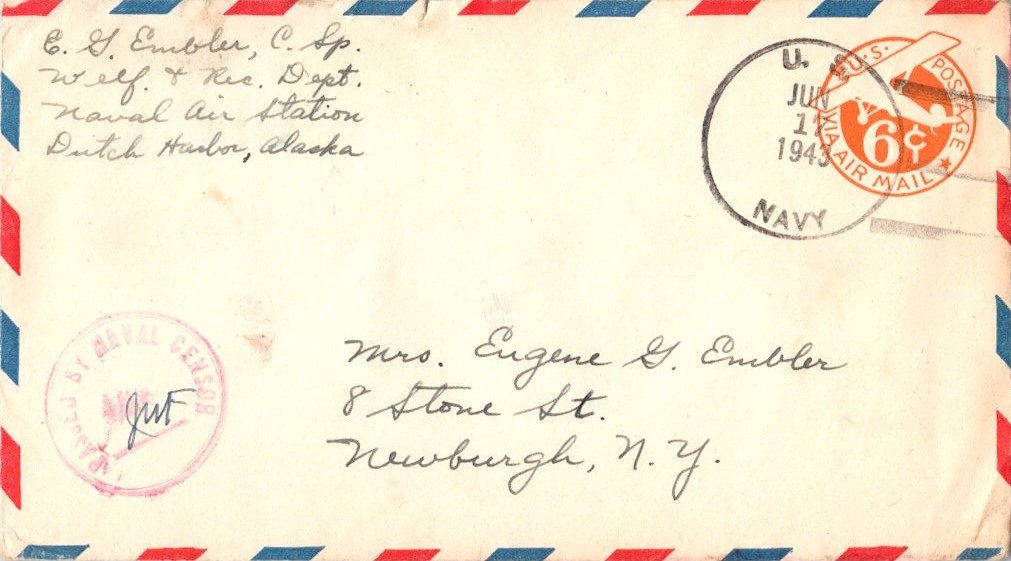 E. G. Embler, C. Sp.
Welf. & Rec. Dept.
Naval Air Station
Dutch Harbor, Alaska
U. S.
JUN
17
1943
NAVY
U.S. POSTAGE
6¢
VIA AIR MAIL
PASSED BY NAVAL CENSOR
Mrs. Eugene G. Embler
8 Stone St.
Newburgh, N. Y.